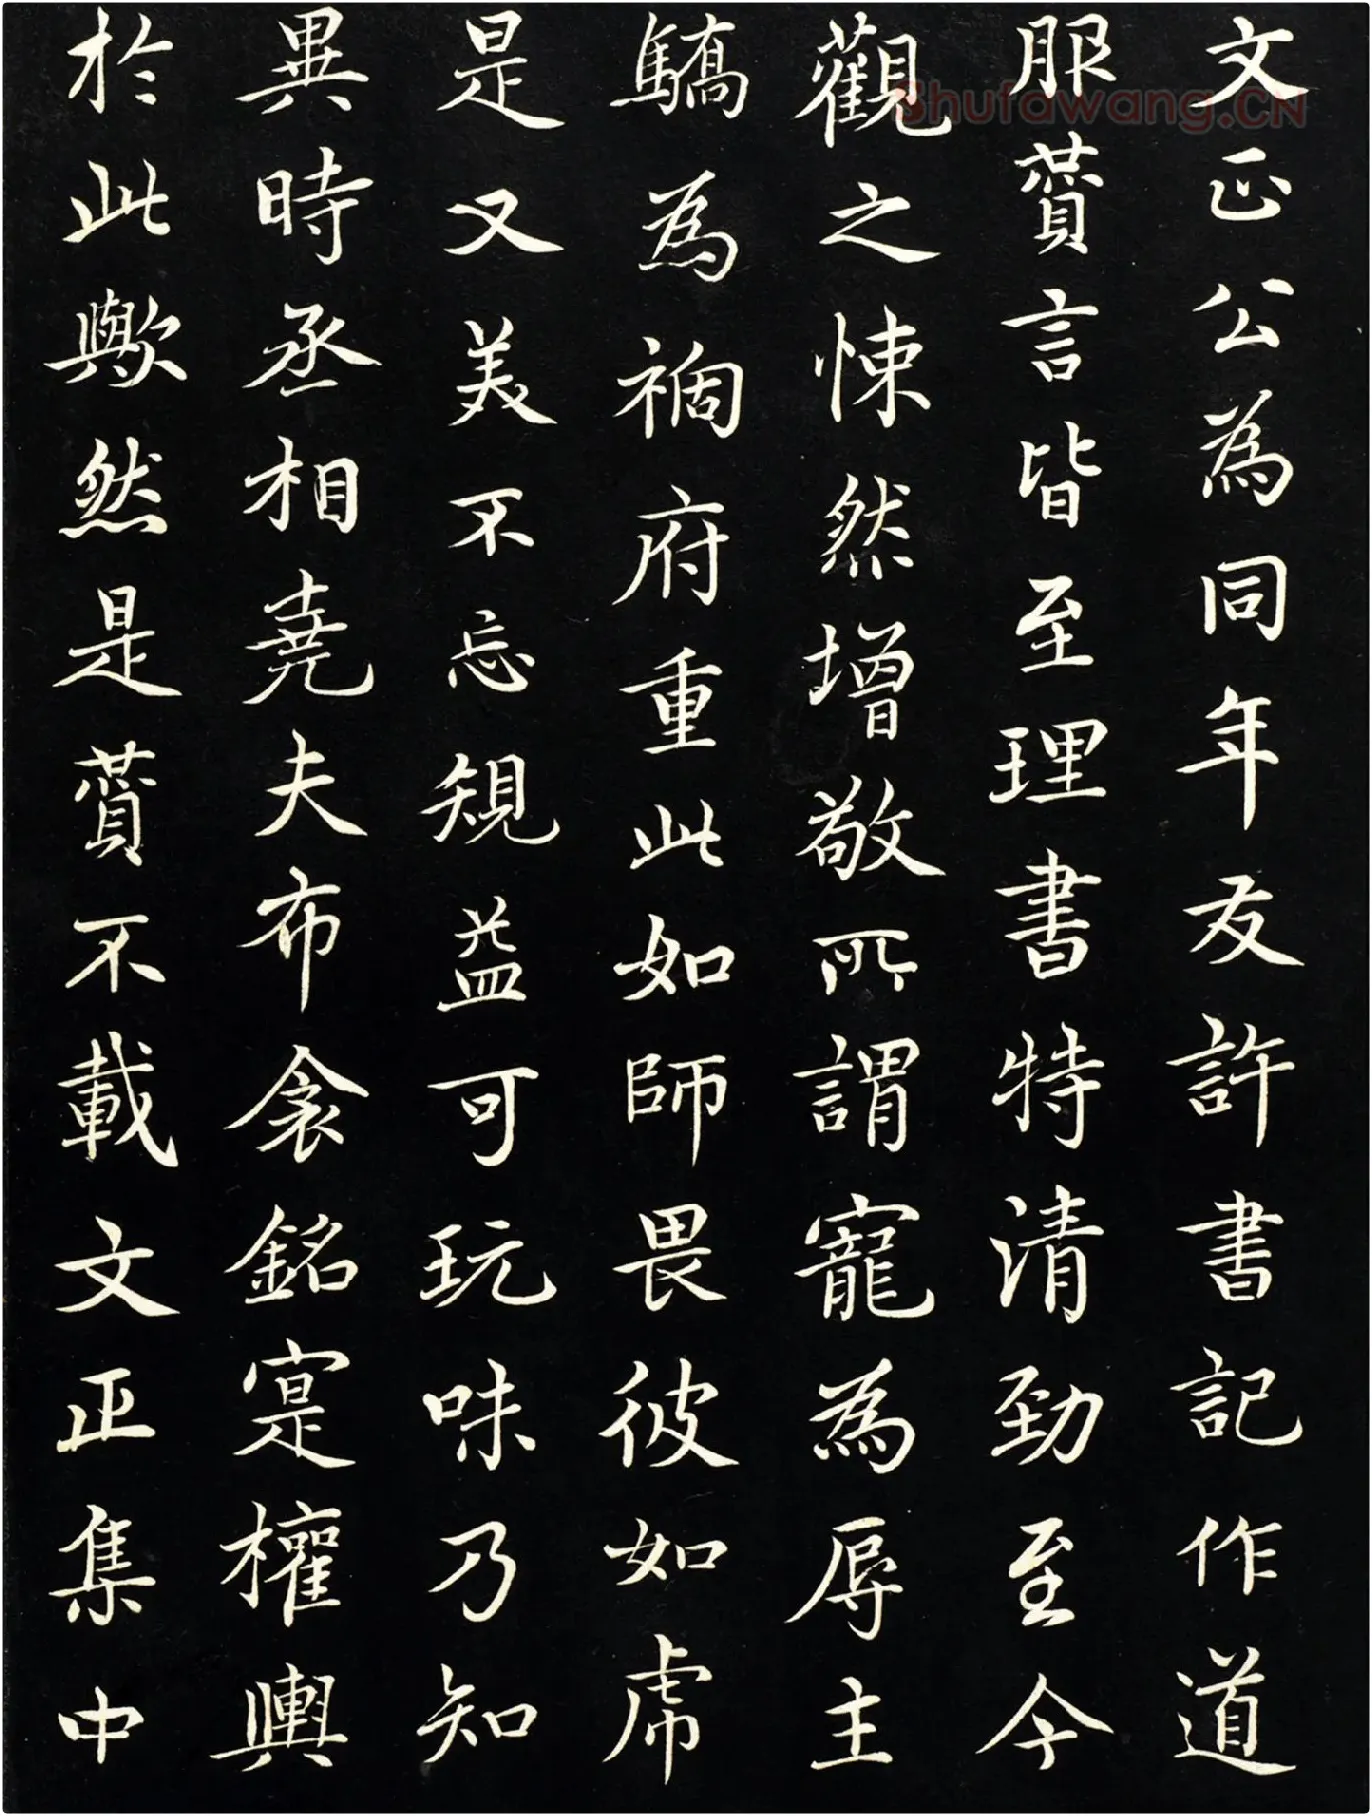 文正公為同年友許書記作道
服贊言皆至理書特清勁至今
觀之悚然增敬所謂寵為辱主
驕為禍府重此如師畏彼如虎
是又美不忘規益可玩味乃知
異時丞相堯夫布衾銘寔權輿
於此歟然是贊不載文正集中
Shufawang.CN